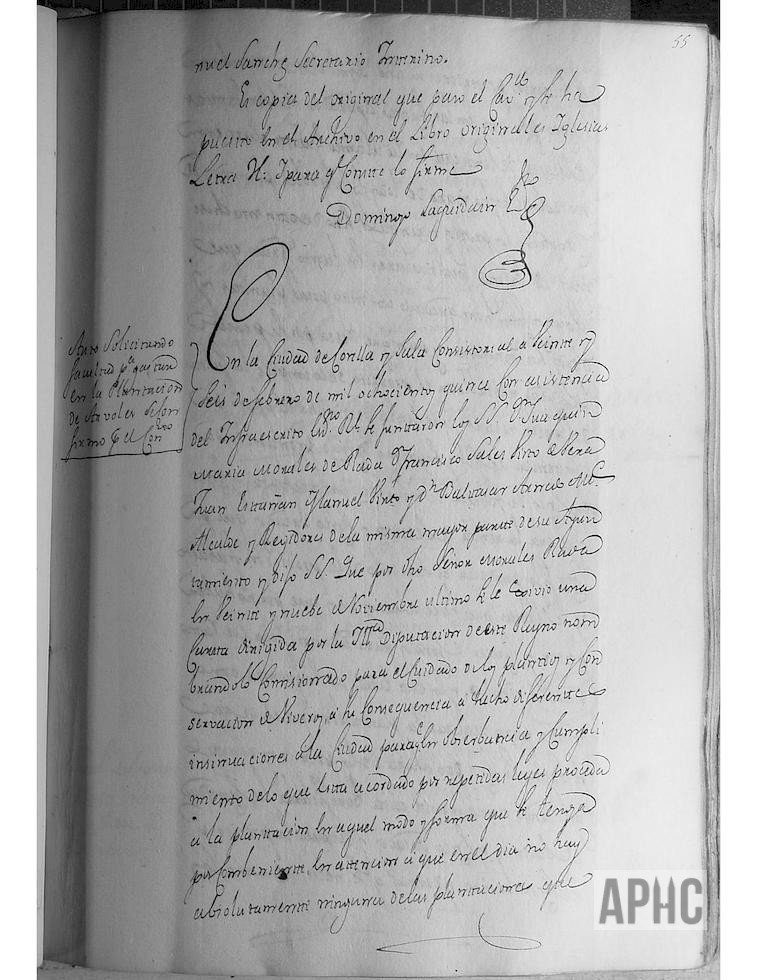 55
nuel Sanchez Secretario Interino.
Es copia del original que paso el Cavllo y se ha
puesto en el Archivo en el Libro originales Iglesias
Letra H: Ypara qe Conste lo firme
Domingo Laquidain
Auto Solicitando
facultad pa gastar
en la Plantacion
de Arvoles Segun
firmo el
En la Ciudad de Corella y Sala Consistorial a Veinte y
Seis de febrero de mil ochocientos quince Con asistencia
del Infraescrito Esno Rl. se juntaron los SS. Dn Juaquin
Maria Morales de Rada Dn Francisco Sales Virto de Vera
Juan Escañan Manuel Virto y Dn Baltasar
Alcalde y Regidores dela misma mayor parte desu Ayun
tamiento y dijo SS. Que por dho Señor Morales Rada
En Veinte y nuebe de Noviembre ultimo se le exivio una
Carta dirigida por la Illma Diputacion deeste Reyno nom
brandolo Comisionado para el Cuidado de los plantios y Con
servacion de Viveros, a su Consequencia a hecho diferentes
insinuaciones ala Ciudad paraqe En Obserbancia y Cumpli
miento delo que Esta acordado por repetidas leyes proceda
a la plantacion En aquel modo y forma que se tenga
por Combeniente, En attencion a que en el dia no hay
absolutamente ninguna delas plantaciones que
APHC